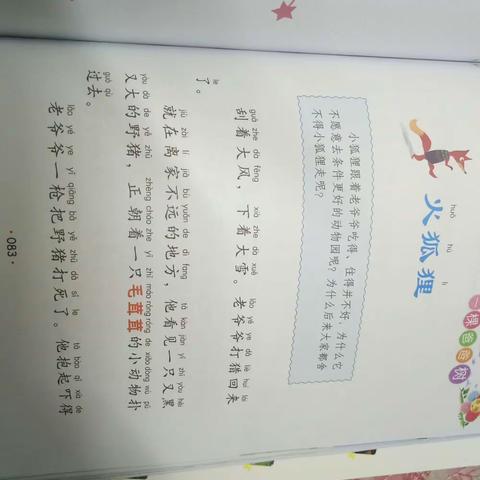 一棵爸爸树
huǒ hú li
火狐狸
小狐狸跟着老爷爷吃得、住得并不好，为什么它
不愿意去条件更好的动物园呢？为什么后来大家都舍
不得小狐狸走呢？
guā zhe dà fēng xià zhe dà xuě lǎo yé ye dǎ liè huí lái
刮着大风，下着大雪。老爷爷打猎回来
le
了。
jiù zài lí jiā bù yuǎn de dì fang tā kàn jiàn yì zhī yòu hēi
就在离家不远的地方，他看见一只又黑
yòu dà de yě zhū zhèng cháo zhe yì zhī máo róng róng de xiǎo dòng wù pū
又大的野猪，正朝着一只毛茸茸的小动物扑
guò qù
过去。
lǎo yé ye yì qiāng bǎ yě zhū dǎ sǐ le tā bào qǐ xià de
老爷爷一枪把野猪打死了。他抱起吓得
·083·